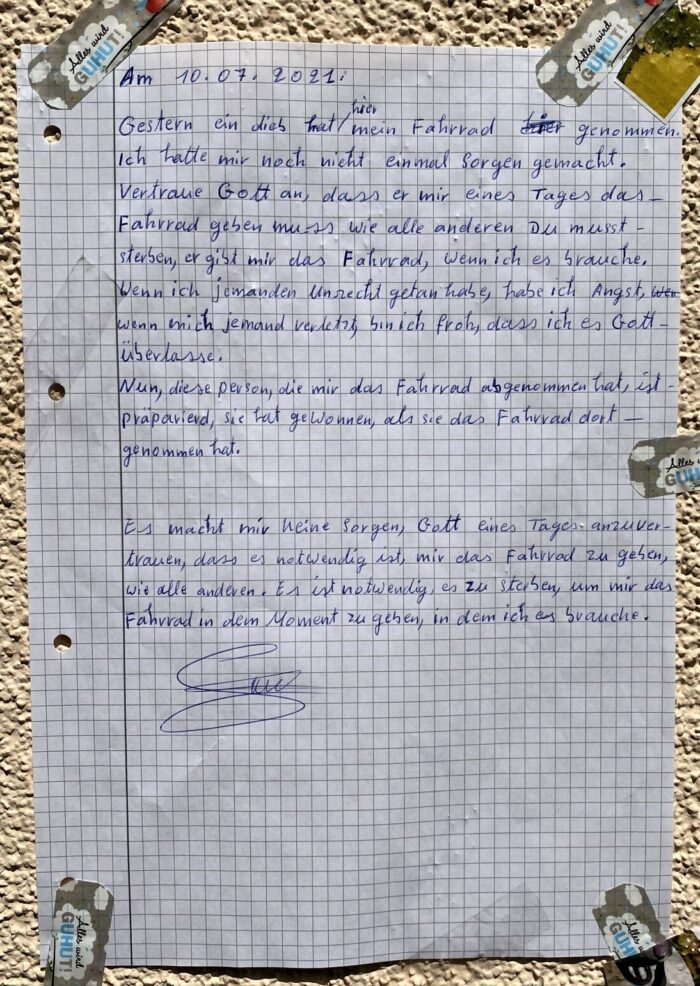 Alles wird
GUHUT!
Alles wird
GUHUT!
Am 10.07.2021.
hier
Gestern ein dieb hat / mein Fahrrad hier genommen.
Ich hatte mir noch nicht einmal Sorgen gemacht.
Vertraue Gott an, dass er mir eines Tages das –
Fahrrad geben muss wie alle anderen Du musst -
sterben, er gibt mir das Fahrrad, wenn ich es brauche.
Wenn ich jemanden Unrecht getan habe, habe ich Angst, wer
wenn mich jemand verletzt, bin ich froh, dass ich es Gott -
überlasse.
Nun, diese Person, die mir das Fahrrad abgenommen hat, ist -
präpavierd, sie hat gewonnen, als sie das Fahrrad dort –
genommen hat.
Alles wi
GUHU
Es macht mir keine Sorgen, Gott eines Tages anzuver-
trauen, dass es notwendig ist, mir das Fahrrad zu geben,
wie alle anderen. Es ist notwendig, es zu sterben, um mir das
Fahrrad in dem Moment zu geben, in dem ich es brauche.
Alles wird
GUHUT!
Alles wird
GUHU